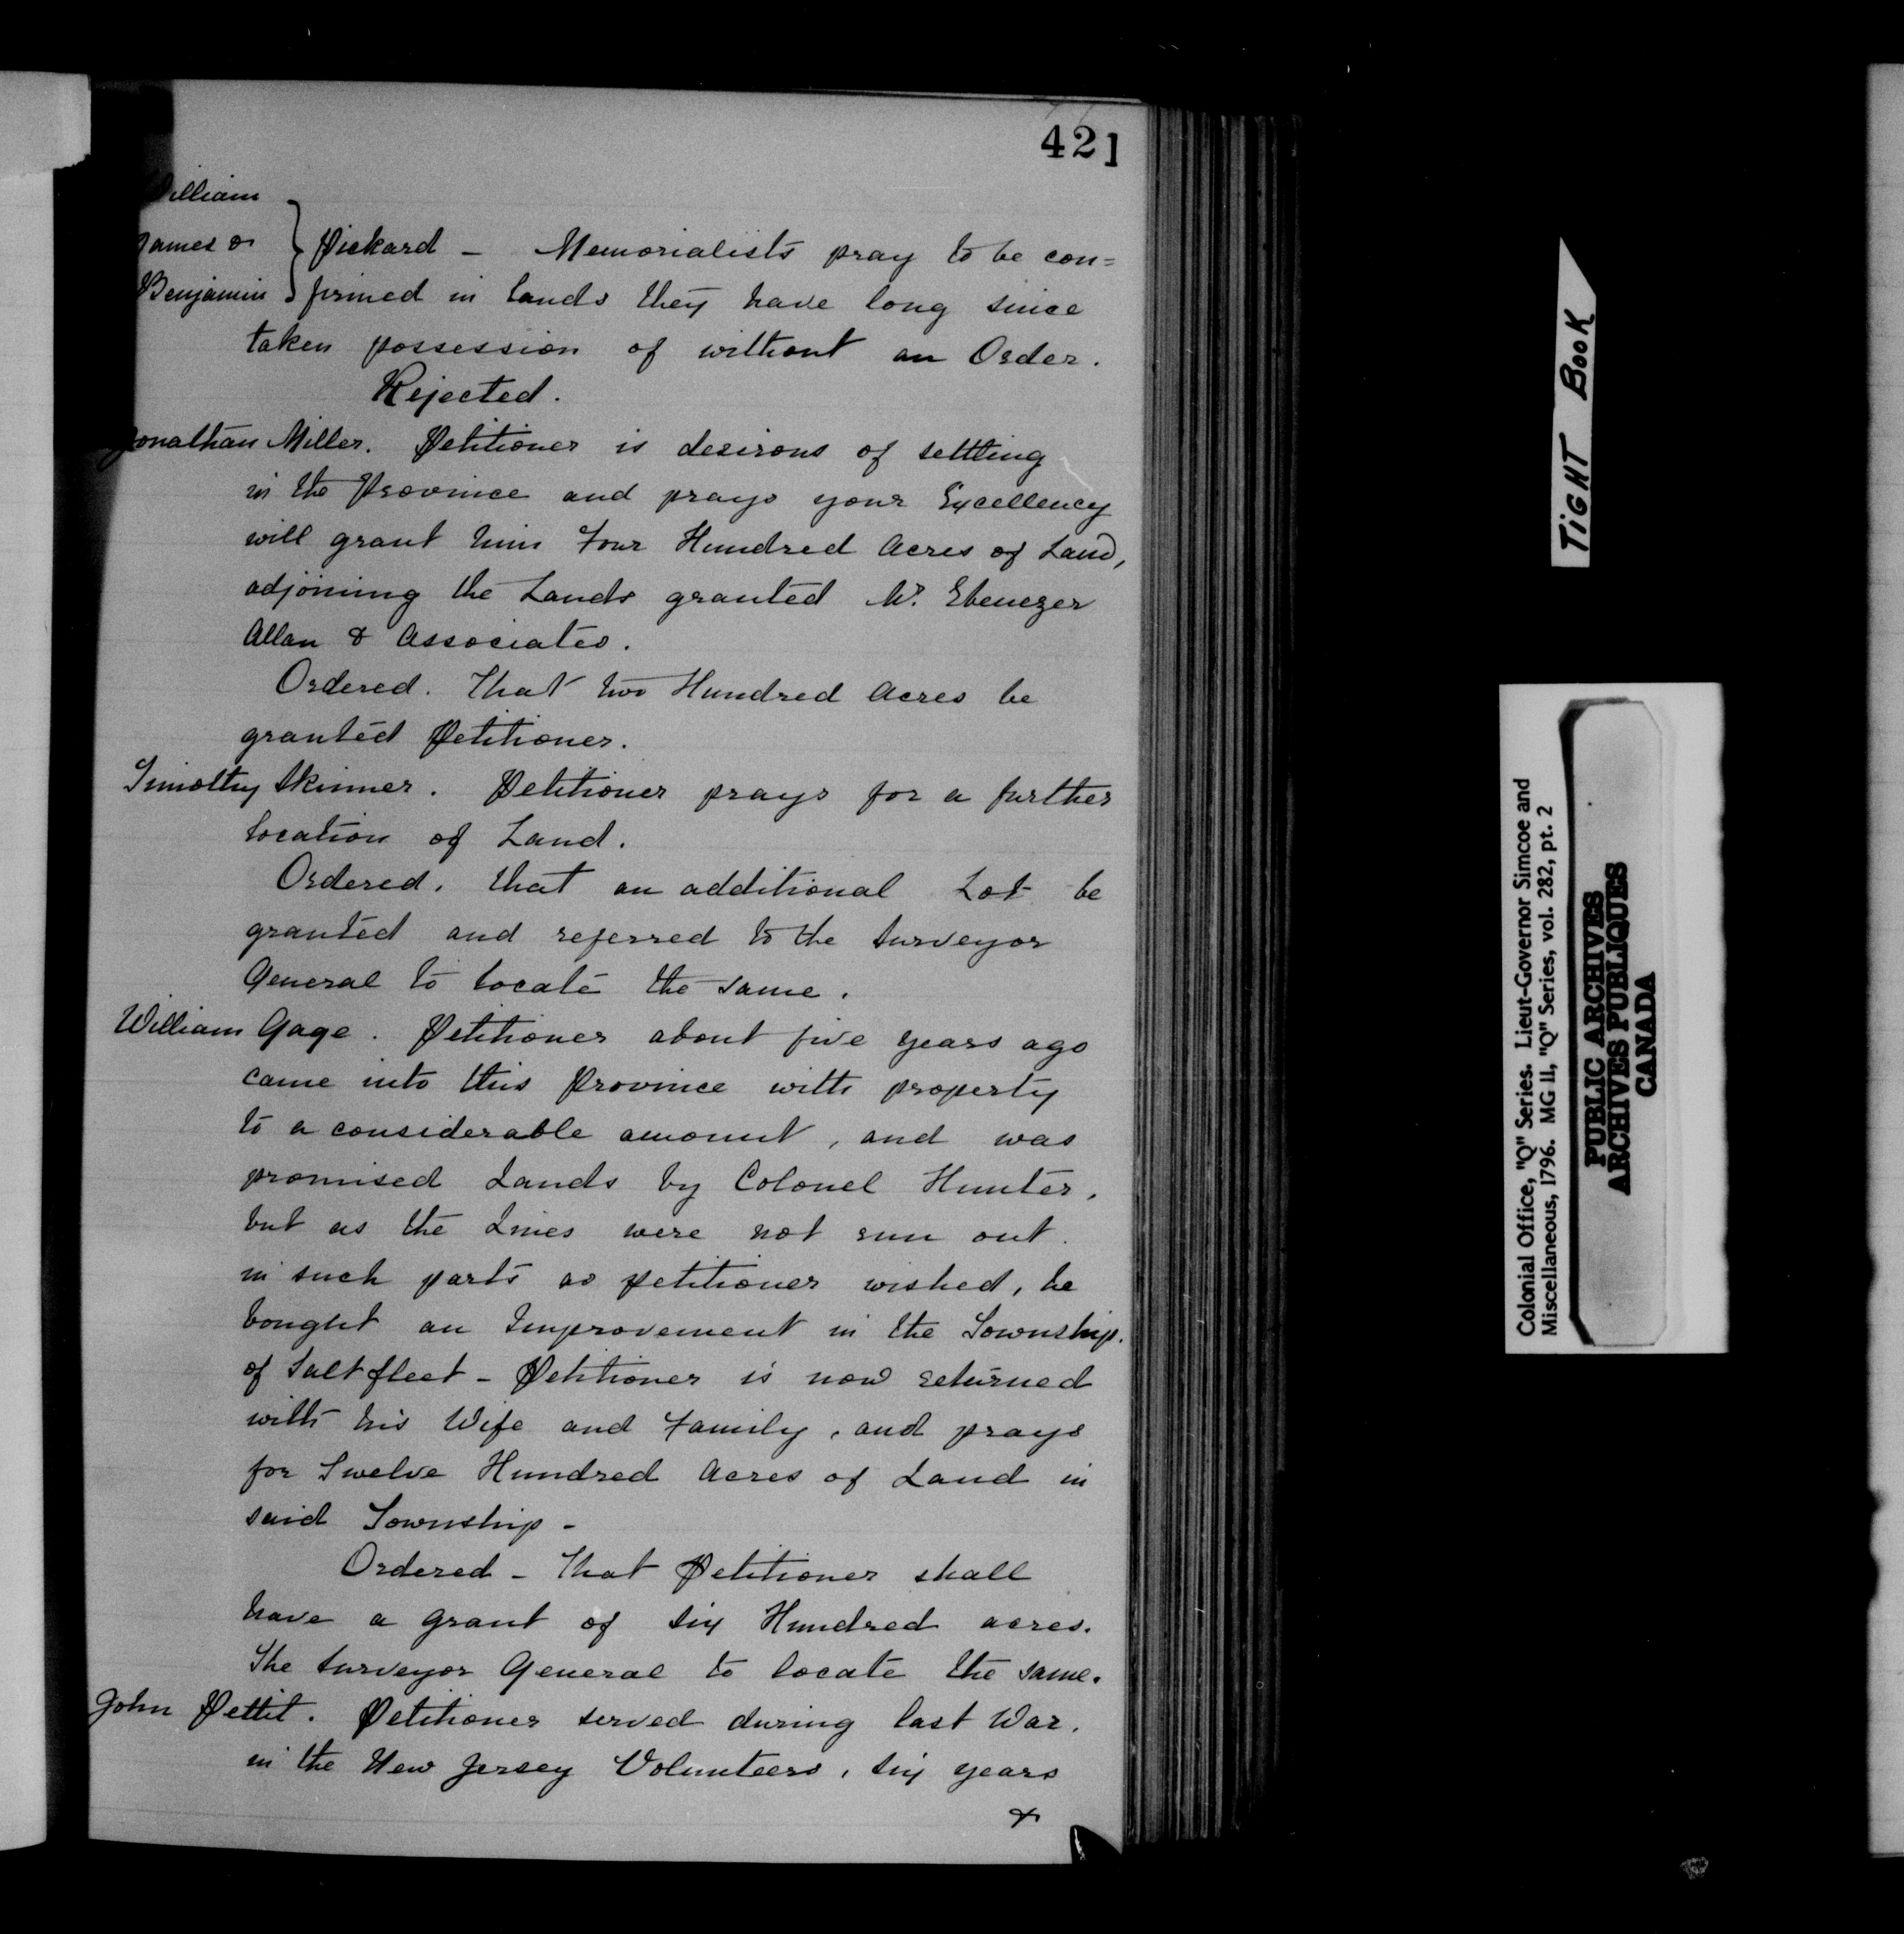 421
William
James & } Pickard - Memorialists pray to be con=
Benjamin } firmed in lands they have long since
taken possession of without an Order.
Rejected.
Jonathan Miller. Petitioner is desirous of settling
in the Province and prays your Excellency
will grant him Four Hundred Acres of Land,
adjoining the Lands granted Mr. Ebenezer
Allan & Associates.
Ordered. That two Hundred Acres be
granted Petitioner.
Timothy Skinner. Petitioner prays for a further
location of Land.
Ordered, that an additional Lot be
granted and referred to the Surveyor
General to locate the same.
William Gage. Petitioner about five years ago
came into this Province with property
to a considerable amount, and was
promised Lands by Colonel Hunter,
but as the Lines were not run out.
in such parts as petitioner wished, he
bought an Improvement in the Township.
of Saltfleet - Petitioner is now returned
with his Wife and Family, and prays
for Twelve Hundred Acres of Land in
said Township -
Ordered - That Petitioner shall
have a grant of Six Hundred acres.
The Surveyor General to locate the same.
John Pettit. Petitioner served during last War.
in the New Jersey Volunteers, six years
&
TIGHT BOOK
Colonial Office, "Q" Series. Lieut-Governor Simcoe and
Miscellaneous, 1796. MG 11, "Q" Series, vol. 282, pt. 2
PUBLIC ARCHIVES
ARCHIVES PUBLIQUES
CANADA